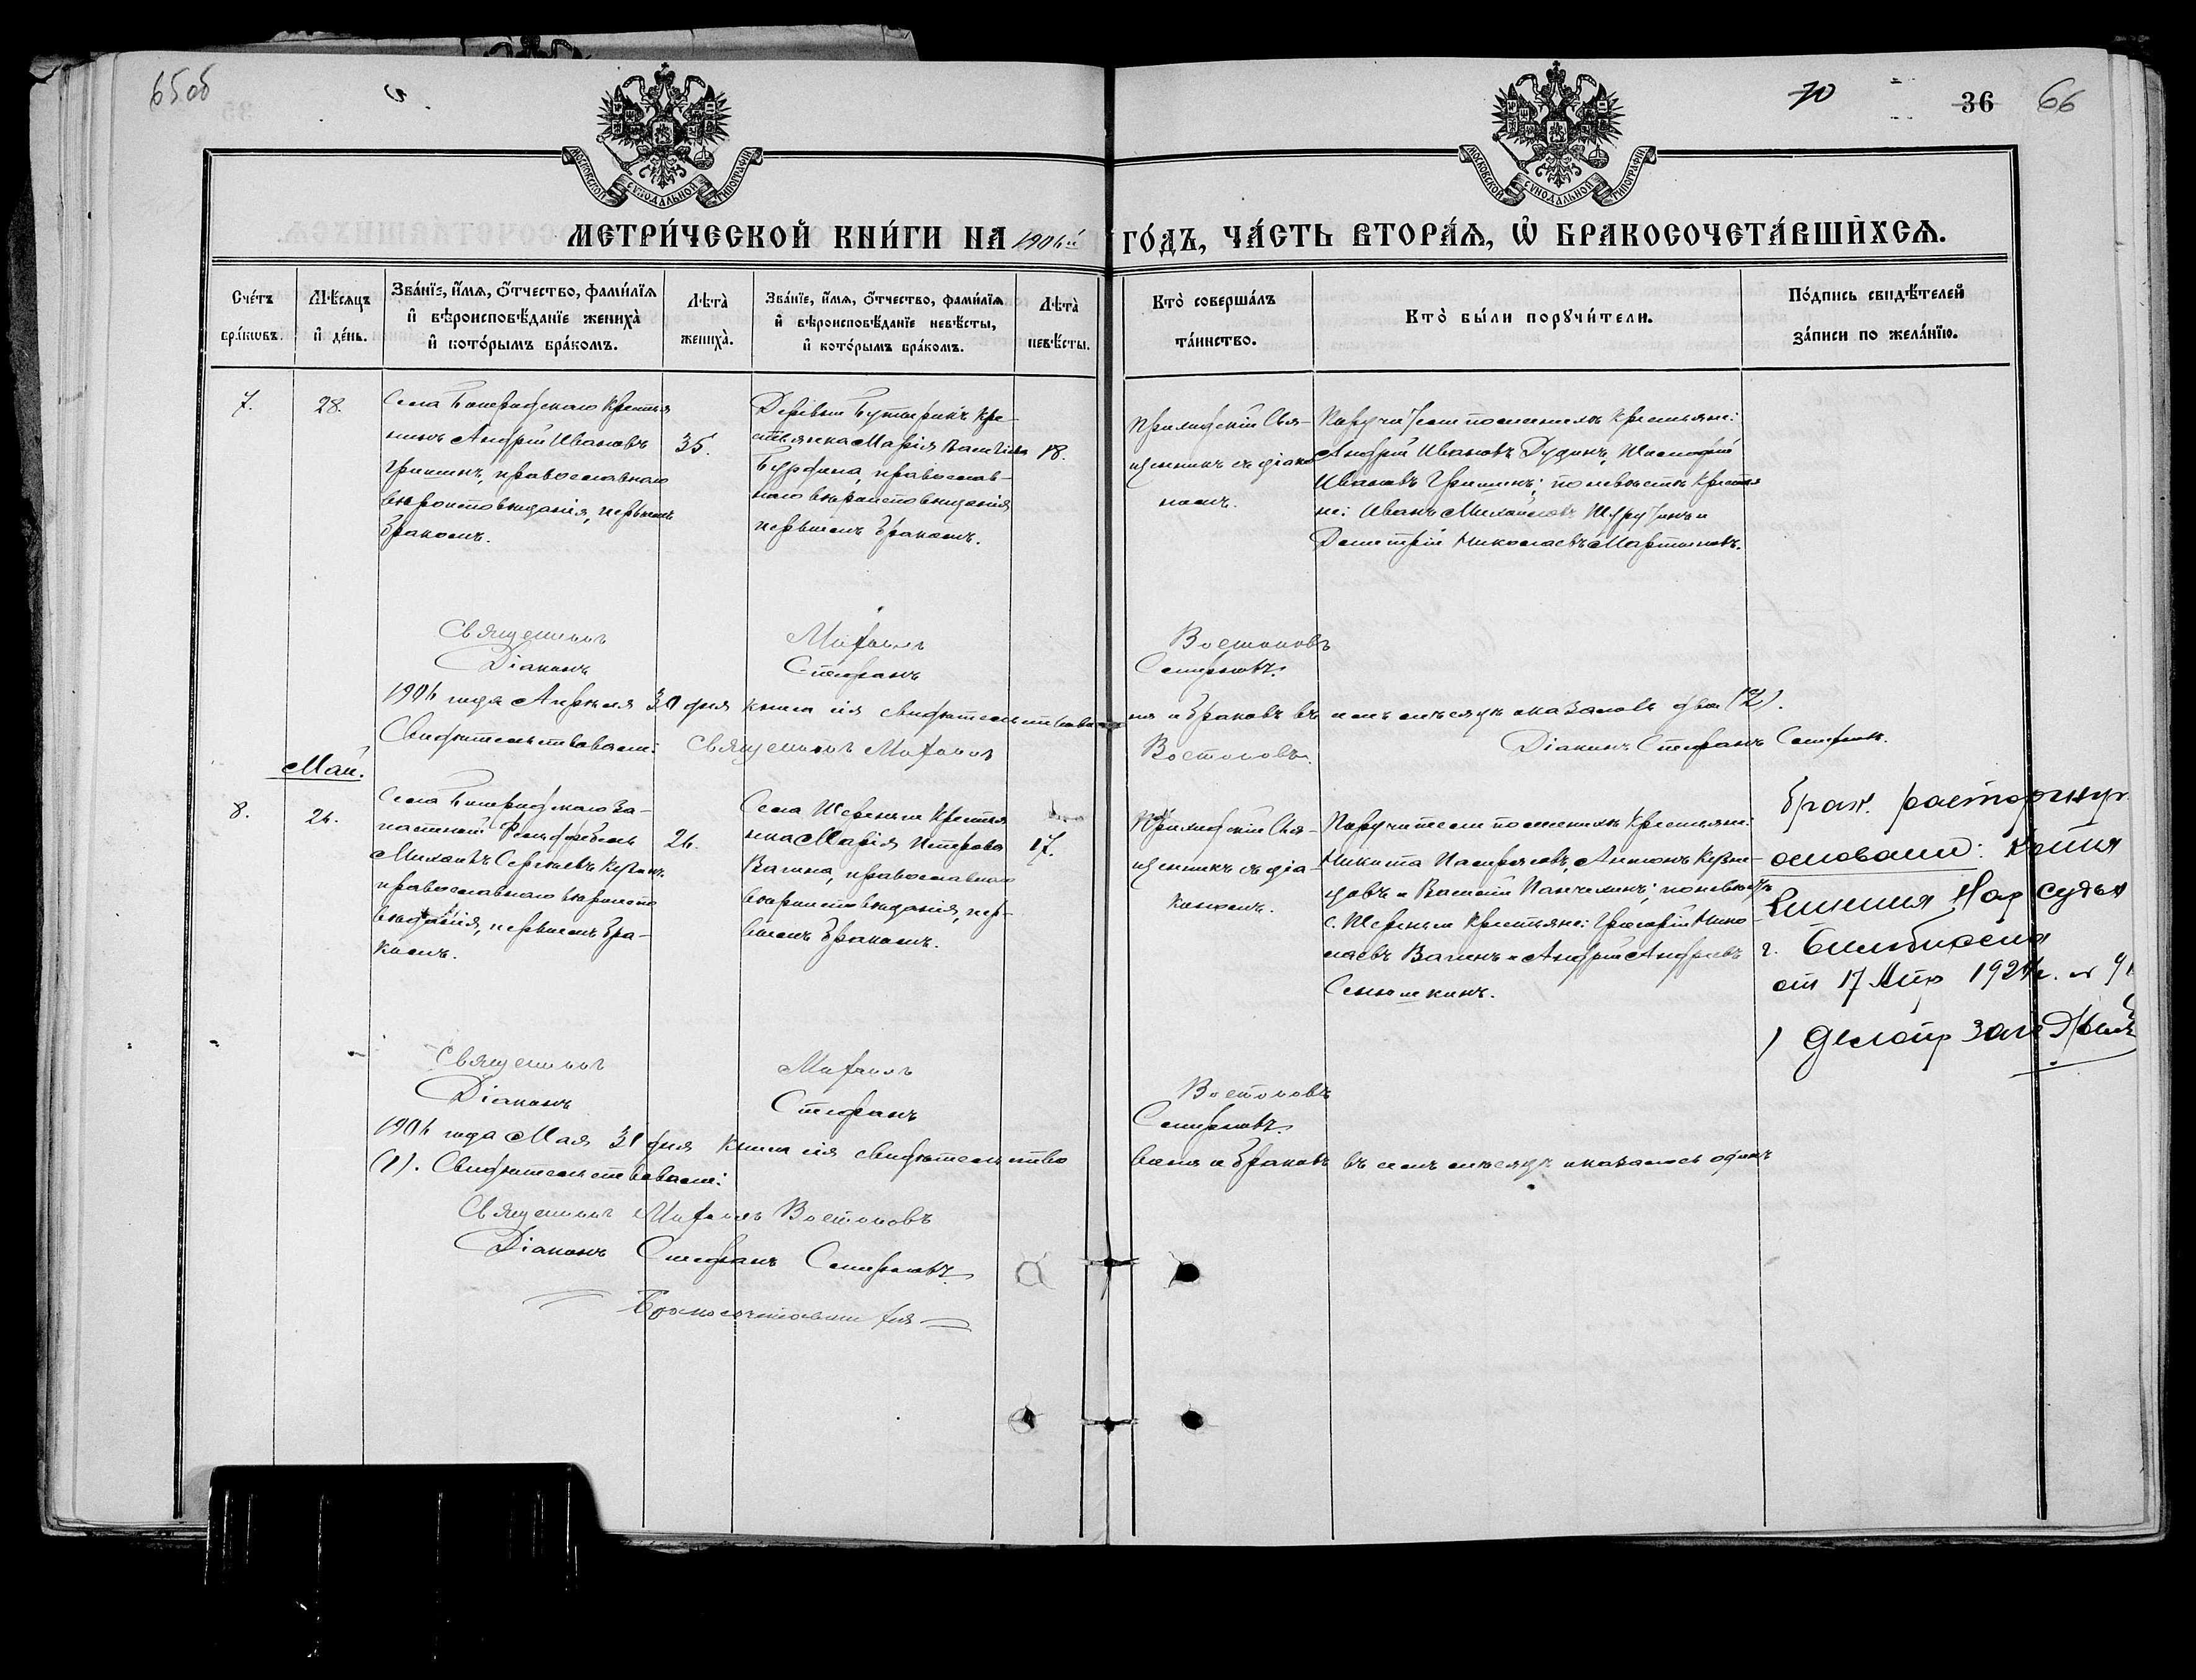 65об
36 66
МОСКОВСКОЙ СѴНОДАЛЬНОЙ ТИПОГРАФІИ
МОСКОВСКОЙ СѴНОДАЛЬНОЙ ТИПОГРАФІИ
МЕТРИ́ЧЕСКОЙ КНИ́ГИ НА 1904й ГО́ДЪ, ЧА́СТЬ ВТОРА́Ѧ, Ѡ҆ БРАКОСОЧЕТА́ВШИХСѦ.
Сче́тъ бра́ковъ.
Мѣ́сѧцъ и҆ де́нь.
Зва́нїе, и҆́мѧ, ѻ҆́тчество, фами́лїѧ и҆ вѣроисповѣ́данїе жениха̀ и҆ кото́рымъ бра́комъ.
Лѣта̀ жениха̀.
Зва́нїе, и҆́мѧ, ѻ҆́тчество, фами́лїѧ и҆ вѣроисповѣ́данїе невѣ́сты, и҆ кото́рымъ бра́комъ.
Лѣта̀ невѣ́сты.
Кто̀ соверша́лъ та́инство.
Кто̀ бы́ли порꙋчи́тели.
По́дпись свидѣ́телей за́писи по жела́нїю.
7.
28.
Села Крестья
нинъ Андрей Ивановъ
Гришинъ, православнаго
вѣроисповѣданія, первымъ
бракомъ.
35.
Деревни Кре-
стьянка Марія
православ-
наго вѣроисповѣданія
первымъ бракомъ.
18.
Приходскій Свя-
щенникъ съ діако
номъ.
Поручители по женихѣ Крестьяне:
Андрей Ивановъ Дудинъ,
Ивановъ Гришинъ; по невѣстѣ Крестья
не: Иванъ Михайловъ и
Димитрій Николаевъ Мартыновъ.
Священникъ Михаилъ Востоковъ
Діаконъ Стефанъ Смирновъ.
1904 года Апрѣля 30 дня книга сія свидѣтельствована и браковъ въ семъ мѣсяцѣ оказалось два (2).
Свидѣтельствовали: Священникъ Михаилъ Востоковъ. Діаконъ Стефанъ Смирновъ.
Май.
8.
24.
Села За-
пасный
Михаилъ Сергѣевъ
православнаго вѣроиспо
вѣданія, первымъ бра-
комъ.
24.
Села Крестья
нка Марія Петрова
Вагина, православнаго
вѣроисповѣданія, пер-
вымъ бракомъ.
17.
Приходскій Свя-
щенникъ съ діа-
кономъ.
Поручители по женихѣ Крестьяне:
Никита Антонъ
и Василій по невѣстѣ
с. Крестьяне: Григорій Нико
лаевъ Вагинъ и Андрей Андреевъ
брак расторгнут
основание: Копия
решения Нар судьи
г.
от 17 Апр 1924г. №
Священникъ Михаилъ Востоковъ
Діаконъ Стефанъ Смирновъ.
1904 года Мая 31 дня книга сія свидѣтельствована и браковъ въ семъ мѣсяцѣ оказалось одинъ
(1). Свидѣтельствовали:
Священникъ Михаилъ Востоковъ
Діаконъ Стефанъ Смирновъ.